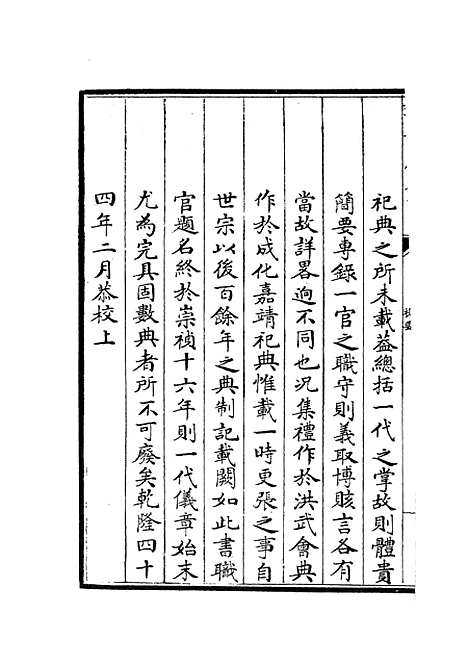 祀典之所未載葢總括一代之掌故則體貴
簡要專錄一官之職守則義取博賅言各有
當故詳畧逈不同也况集禮作於洪武會典
作於成化嘉靖祀典惟載一時更張之事自
世宗以後百餘年之典制記載闕如此書職
官題名終於崇禎十六年則一代儀章始末
尤為完具固數典者所不可廢矣乾隆四十
四年二月恭校上